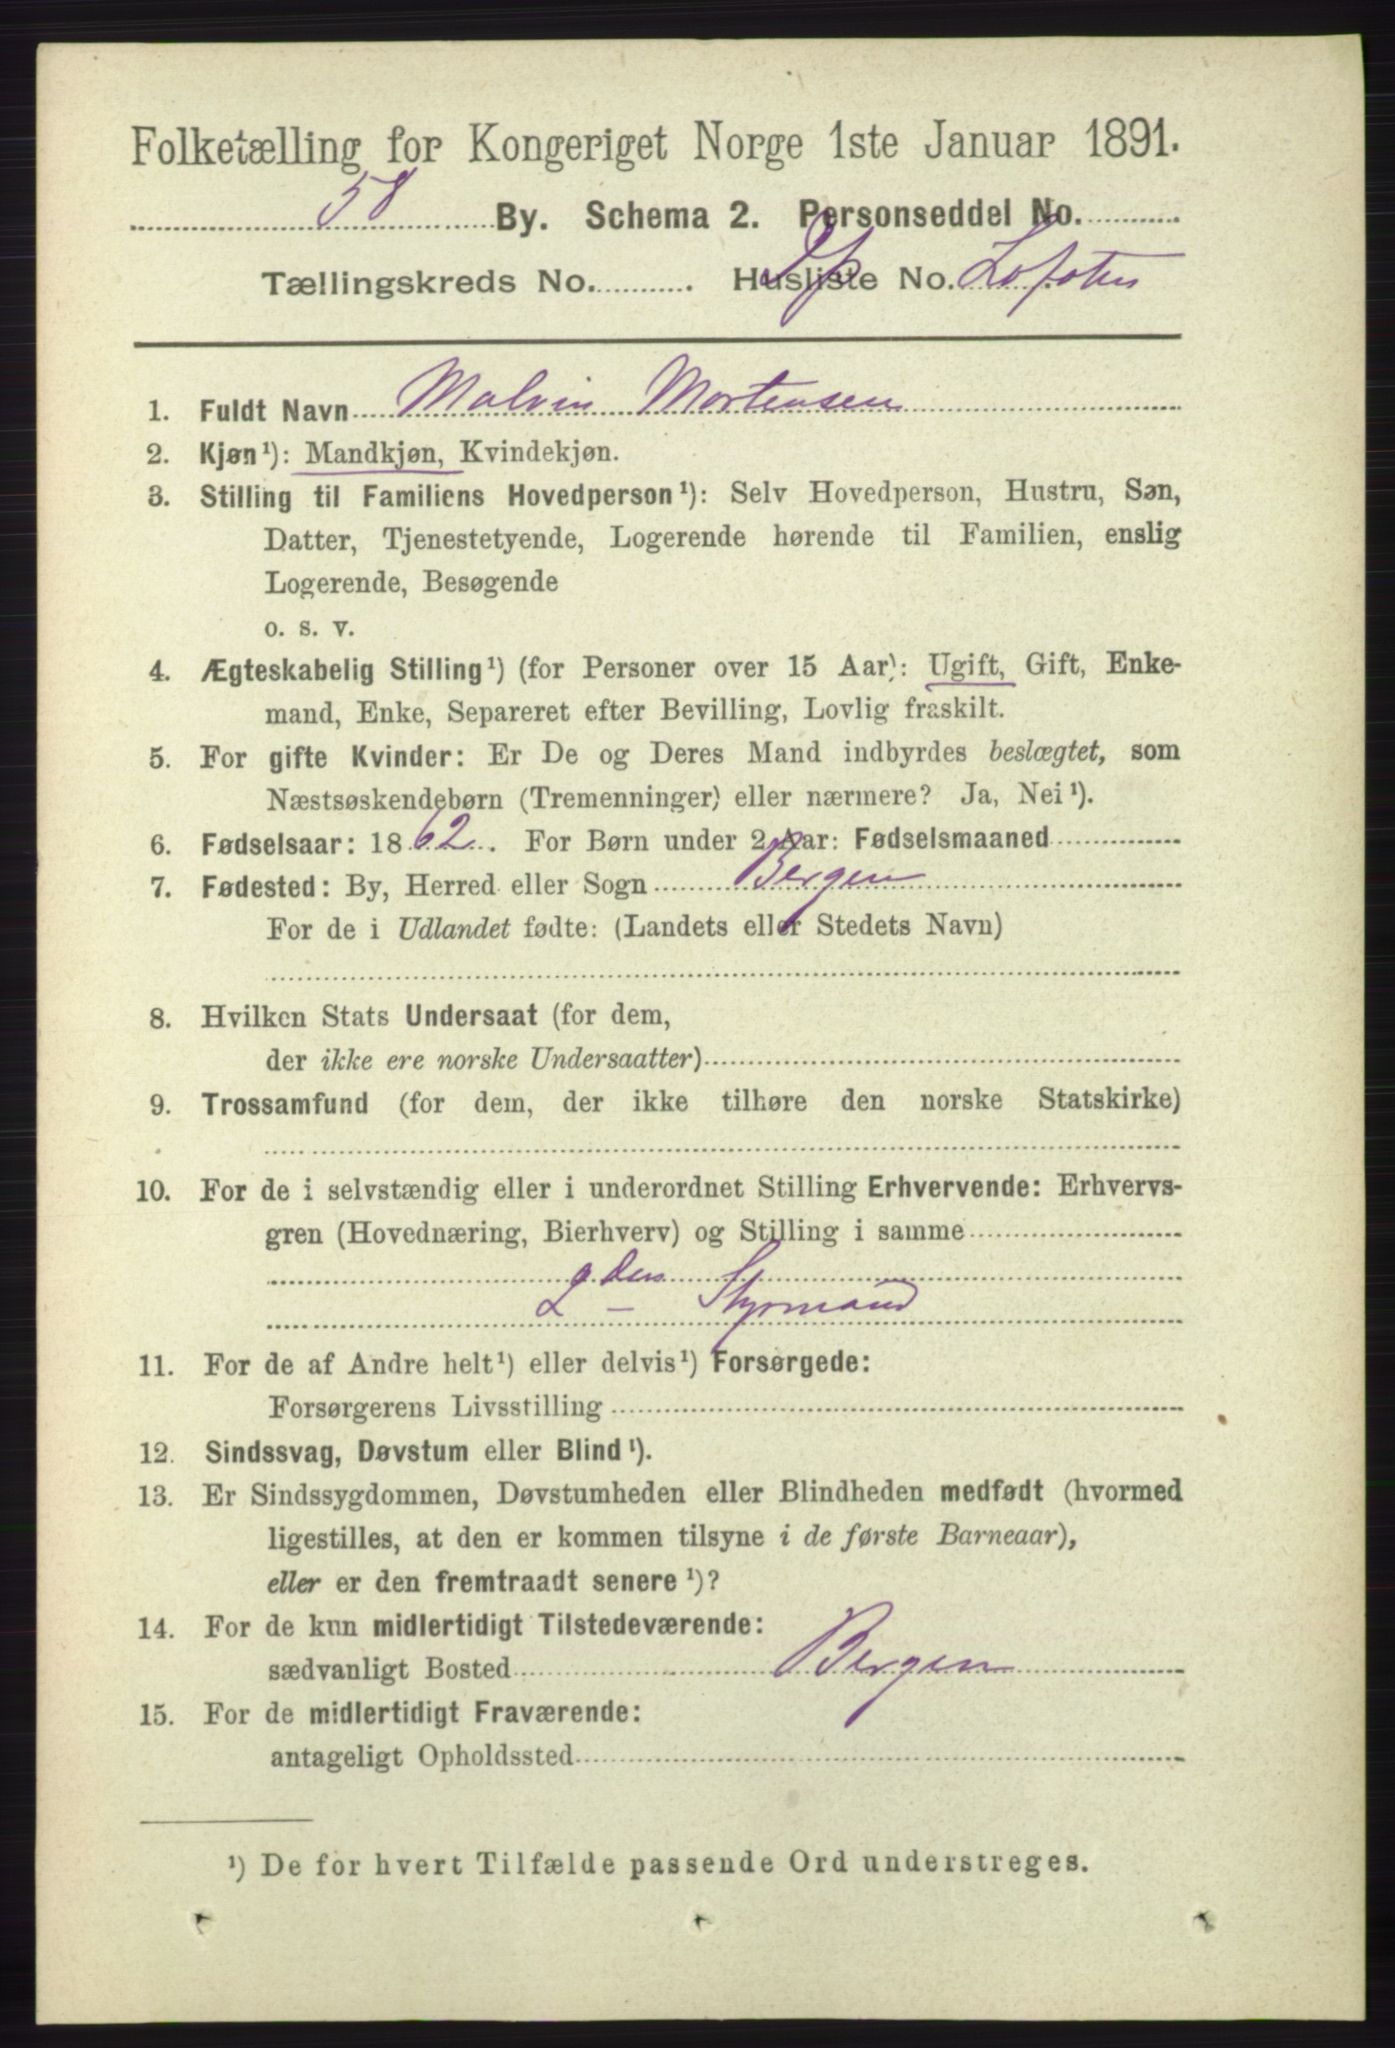 Folketælling for Kongeriget Norge 1ste Januar 1891.
58 By. Schema 2. Personseddel No.
Tællingskreds No. Husliste No. Lofoten
1. Fuldt Navn Malvin Mortensen
2. Kjøn¹): Mandkjøn, Kvindekjøn.
3. Stilling til Familiens Hovedperson¹): Selv Hovedperson, Hustru, Søn,
Datter, Tjenestetyende, Logerende hørende til Familien, enslig
Logerende, Besøgende
o. s. v.
4. Ægteskabelig Stilling¹) (for Personer over 15 Aar): Ugift, Gift, Enke-
mand, Enke, Separeret efter Bevilling, Lovlig fraskilt.
5. For gifte Kvinder: Er De og Deres Mand indbyrdes beslægtet, som
Næstsøskendebørn (Tremenninger) eller nærmere? Ja, Nei¹).
6. Fødselsaar: 1862. For Børn under 2 Aar: Fødselsmaaned
7. Fødested: By, Herred eller Sogn Bergen
For de i Udlandet fødte: (Landets eller Stedets Navn)
8. Hvilken Stats Undersaat (for dem,
der ikke ere norske Undersaatter)
9. Trossamfund (for dem, der ikke tilhøre den norske Statskirke)
10. For de i selvstændig eller i underordnet Stilling Erhvervende: Erhvervs-
gren (Hovednæring, Bierhverv) og Stilling i samme
2 den Styrmand
11. For de af Andre helt¹) eller delvis¹) Forsørgede:
Forsørgerens Livsstilling
12. Sindssvag, Døvstum eller Blind¹).
13. Er Sindssygdommen, Døvstumheden eller Blindheden medfødt (hvormed
ligestilles, at den er kommen tilsyne i de første Barneaar),
eller er den fremtraadt senere¹)?
14. For de kun midlertidigt Tilstedeværende:
sædvanligt Bosted Bergen
15. For de midlertidigt Fraværende:
antageligt Opholdssted
¹) De for hvert Tilfælde passende Ord understreges.